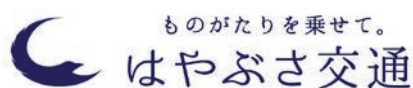 ものがたりを乗せて。
はやぶさ交通